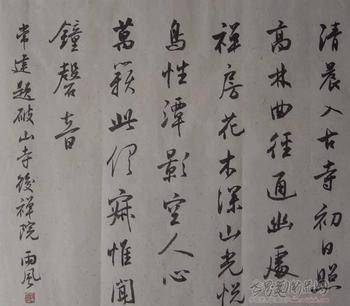 清晨入古寺初日照
高林曲径通幽處
禅房花木深山光悦
鳥性潭影空人心
萬籟此俱寂惟聞
鐘磬音
常建題破山寺後禅院 雨風